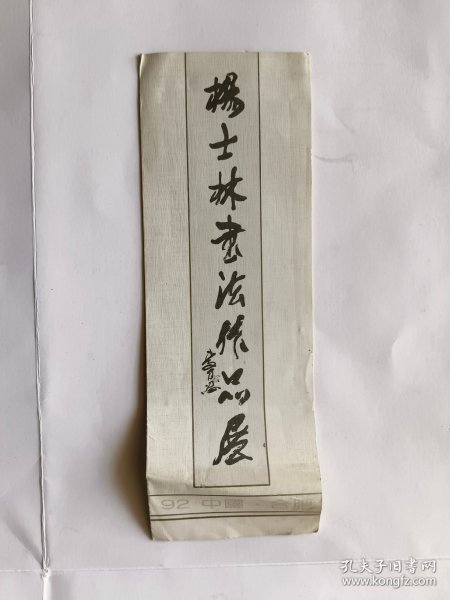 楊士林书法作品展
92 中國·合肥
孔夫子旧书网
www.kongfz.com